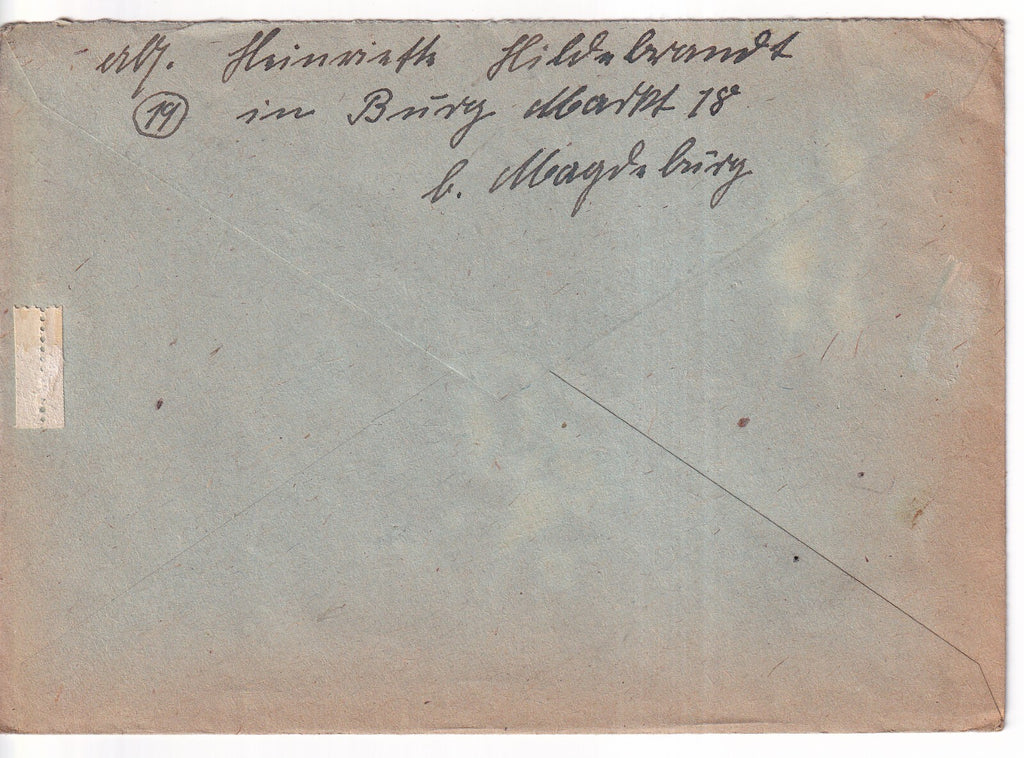 Abs. Henriette Hildebrandt
(19) in Burg Markt 18
b. Magdeburg